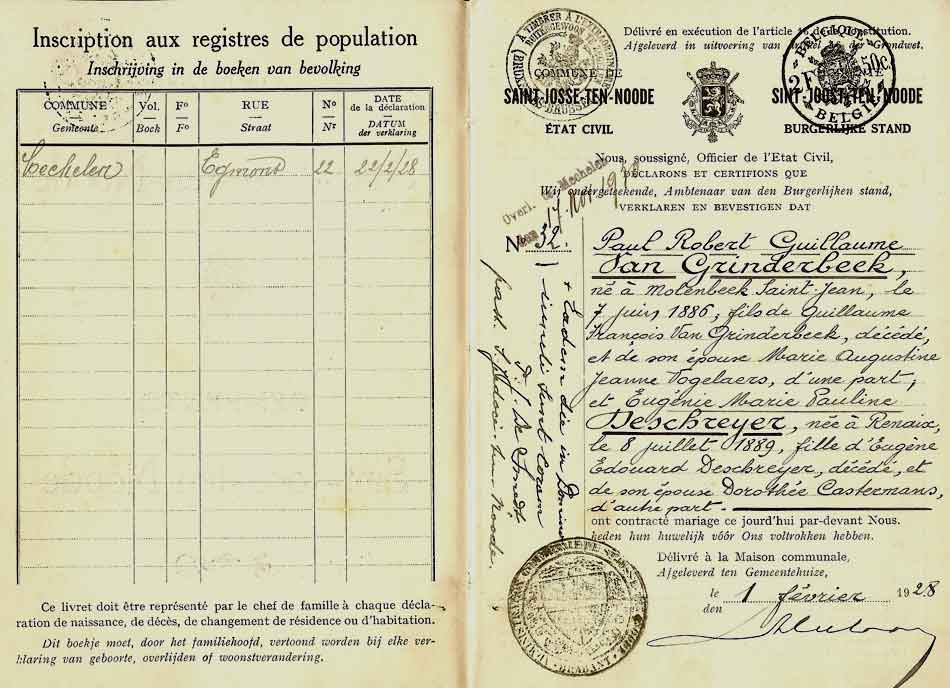 Inscription aux registres de population
Inschrijving in de boeken van bevolking
COMMUNE Vol. Fº RUE Nº DATE de la déclaration
Gemeente Boek Fº Straat Nr DATUM der verklaring
Mechelen Egmond 22 22/2/28
Ce livret doit être représenté par le chef de famille à chaque décla-
ration de naissance, de décès, de changement de résidence ou d'habitation.
Dit boekje moet, door het familiehoofd, vertoond worden bij elke ver-
klaring van geboorte, overlijden of woonstverandering.
Délivré en exécution de l'article 16 de la Constitution.
Afgeleverd in uitvoering van artikel 16 der Grondwet.
A TIMBRER À L'EXTRAORDINAIRE
BUITENGEWOON
BELGIQUE
2F 50c.
BELGIË
COMMUNE DE
SAINT-JOSSE-TEN-NOODE SINT-JOOST-TEN-NOODE
ÉTAT CIVIL BURGERLIJKE STAND
Nous, soussigné, Officier de l'Etat Civil,
DÉCLARONS ET CERTIFIONS QUE
Wij ondergeteekende, Ambtenaar van den Burgerlijken stand,
VERKLAREN EN BEVESTIGEN DAT
Overl. Mechelen
den 17. Nov. 19
Nº 32.
Paul Robert Guillaume
Van Grinderbeek,
né à Molenbeek Saint-Jean, le
7 juin 1886, fils de Guillaume
François Van Grinderbeek, décédé,
et de son épouse Marie Augustine
Jeanne Vogelaers, d'une part;
et Eugénie Marie Pauline
Deschreyer, née à Renaix,
le 8 juillet 1889, fille d'Eugène
Édouard Deschreyer, décédé, et
de son épouse Dorothée Castermans,
d'autre part.
ont contracté mariage ce jourd'hui par-devant Nous.
heden hun huwelijk vóór Ons voltrokken hebben.
Délivré à la Maison communale,
Afgeleverd ten Gemeentehuize,
le
den 1 février 1928
+ Eadem die in Domino
juncti sunt coram
De Smedt
BRABANT